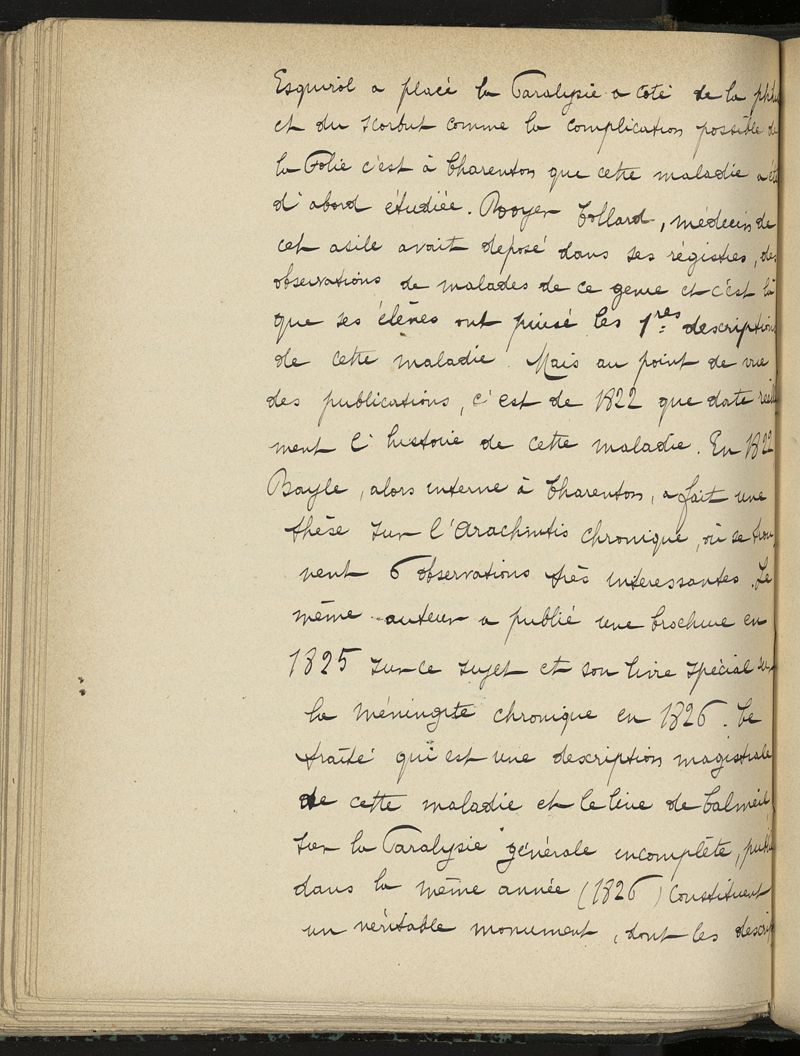 Esquirol a placé la Paralysie a coté de la phthi
et du scorbut comme la complication possible de
la Folie c'est à Charenton que cette maladie a été
d'abord étudiée. Royer Collard, médecin de
cet asile avait deposé dans ses régistres, des
observations de malades de ce genre et c'est là
que ses élèves ont puisé les 1res descriptions
de cette maladie. Mais au point de vue
des publications, c'est de 1822 que date réell
ment l'histoire de cette maladie. En 1822
Bayle, alors interne à Charenton, a fait une
thèse sur l'Arachnitis chronique, où se trou
vent 6 observations très interessantes. Le
même auteur a publié une brochure en
1825 sur ce sujet et son livre spécial sur
la méningite chronique en 1826. Ce
traité qui est une description magistrale
de cette maladie et le livre de Calmeil
sur la Paralysie générale incomplète, publi
dans la même année (1826) constituent
un véritable monument, dont les descrip